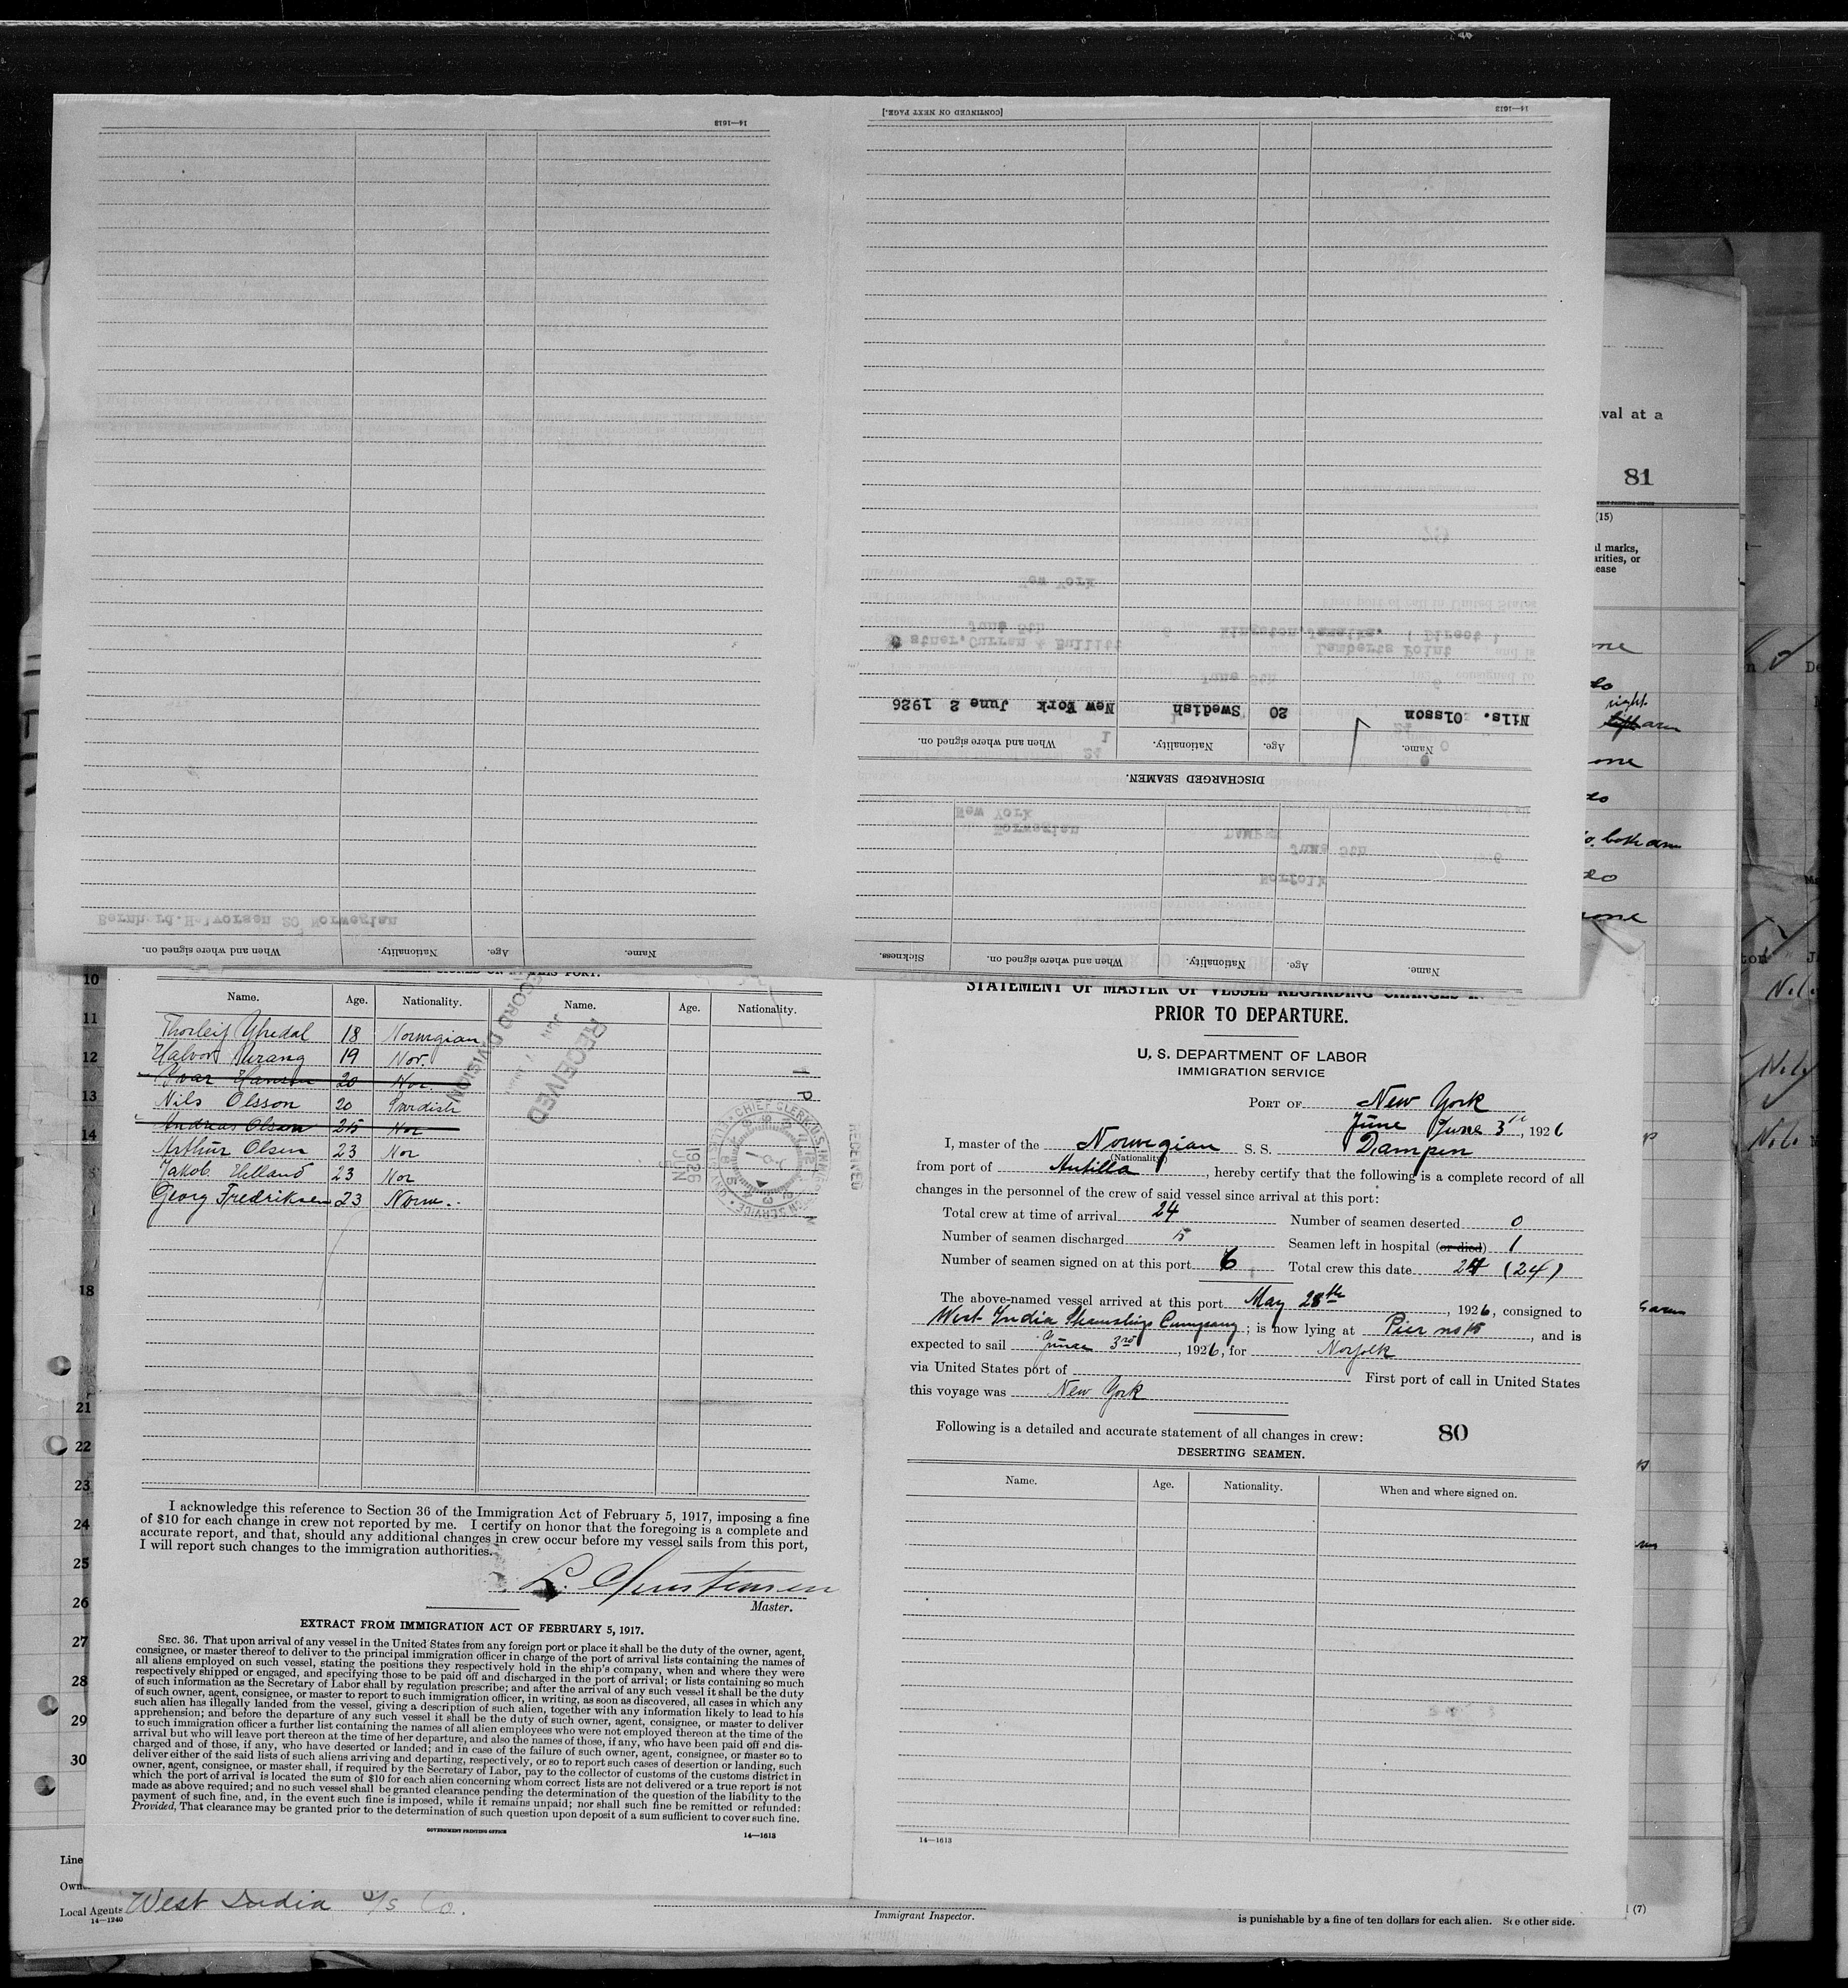 14—1613
[CONTINUED ON NEXT PAGE.]
14—1613
Nils. Olsson 20 Swedish New York June 2 1926
Name. Age. Nationality. When and where signed on.
DISCHARGED SEAMEN.
New York
Norwegian
DAMPEN
June 5th
Norfolk
New York
June 5th
Kingston, Jamaica. ( Direct )
Lamberts Point
Bernhard Halvorsen 20 Norwegian
Name. Age. Nationality. When and where signed on.
Name. Age. Nationality. When and where signed on. Sickness.
val at a
81
(15)
l marks,
arities, or
ease
right
left arm
both arm
10
11
12
13
14
18
21
22
23
24
25
26
27
28
29
30
Name. Age. Nationality. Name. Age. Nationality.
Thorleif 18 Norwegian
Halvor 19 Nor.
Ivar Hansen 20 Nor.
Nils Olsson 20 Swedish
Andreas Olsen 25 Nor
Arthur Olsen 23 Nor
Jakob Helland 23 Nor
Georg Fredriksen 23 Norw.
RECEIVED
RECORD DIVISION
RECEIVED
1926
JUN
I acknowledge this reference to Section 36 of the Immigration Act of February 5, 1917, imposing a fine
of $10 for each change in crew not reported by me. I certify on honor that the foregoing is a complete and
accurate report, and that, should any additional changes in crew occur before my vessel sails from this port,
I will report such changes to the immigration authorities.
L. Christensen
Master.
EXTRACT FROM IMMIGRATION ACT OF FEBRUARY 5, 1917.
SEC. 36. That upon arrival of any vessel in the United States from any foreign port or place it shall be the duty of the owner, agent,
consignee, or master thereof to deliver to the principal immigration officer in charge of the port of arrival lists containing the names of
all aliens employed on such vessel, stating the positions they respectively hold in the ship's company, when and where they were
respectively shipped or engaged, and specifying those to be paid off and discharged in the port of arrival; or lists containing so much
of such information as the Secretary of Labor shall by regulation prescribe; and after the arrival of any such vessel it shall be the duty
of such owner, agent, consignee, or master to report to such immigration officer, in writing, as soon as discovered, all cases in which any
such alien has illegally landed from the vessel, giving a description of such alien, together with any information likely to lead to his
apprehension; and before the departure of any such vessel it shall be the duty of such owner, agent, consignee, or master to deliver
to such immigration officer a further list containing the names of all alien employees who were not employed thereon at the time of the
arrival but who will leave port thereon at the time of her departure, and also the names of those, if any, who have been paid off and dis-
charged and of those, if any, who have deserted or landed; and in case of the failure of such owner, agent, consignee, or master so to
deliver either of the said lists of such aliens arriving and departing, respectively, or so to report such cases of desertion or landing, such
owner, agent, consignee, or master shall, if required by the Secretary of Labor, pay to the collector of customs of the customs district in
which the port of arrival is located the sum of $10 for each alien concerning whom correct lists are not delivered or a true report is not
made as above required; and no such vessel shall be granted clearance pending the determination of the question of the liability to the
payment of such fine, and, in the event such fine is imposed, while it remains unpaid; nor shall such fine be remitted or refunded:
Provided, That clearance may be granted prior to the determination of such question upon deposit of a sum sufficient to cover such fine.
GOVERNMENT PRINTING OFFICE
14—1613
STATEMENT OF MASTER OF VESSEL REGARDING CHANGES
PRIOR TO DEPARTURE.
U. S. DEPARTMENT OF LABOR
IMMIGRATION SERVICE
PORT OF New York
June June 3rd, 1926
I, master of the Norwegian S. S. Dampen
(Nationality)
from port of Antilla, hereby certify that the following is a complete record of all
changes in the personnel of the crew of said vessel since arrival at this port:
Total crew at time of arrival 24 Number of seamen deserted 0
Number of seamen discharged 5 Seamen left in hospital (or died) 1
Number of seamen signed on at this port 6 Total crew this date 24 (24)
The above-named vessel arrived at this port May 28th, 1926, consigned to
West India Steamship Company; is now lying at Pier no 15, and is
expected to sail June 3rd, 1926, for Norfolk
via United States port of First port of call in United States
this voyage was New York
Following is a detailed and accurate statement of all changes in crew: 80
DESERTING SEAMEN.
Name. Age. Nationality. When and where signed on.
14—1613
Line
Own
Local Agents West India S/S Co.
14—1240
Immigrant Inspector.
is punishable by a fine of ten dollars for each alien. See other side.
(7)